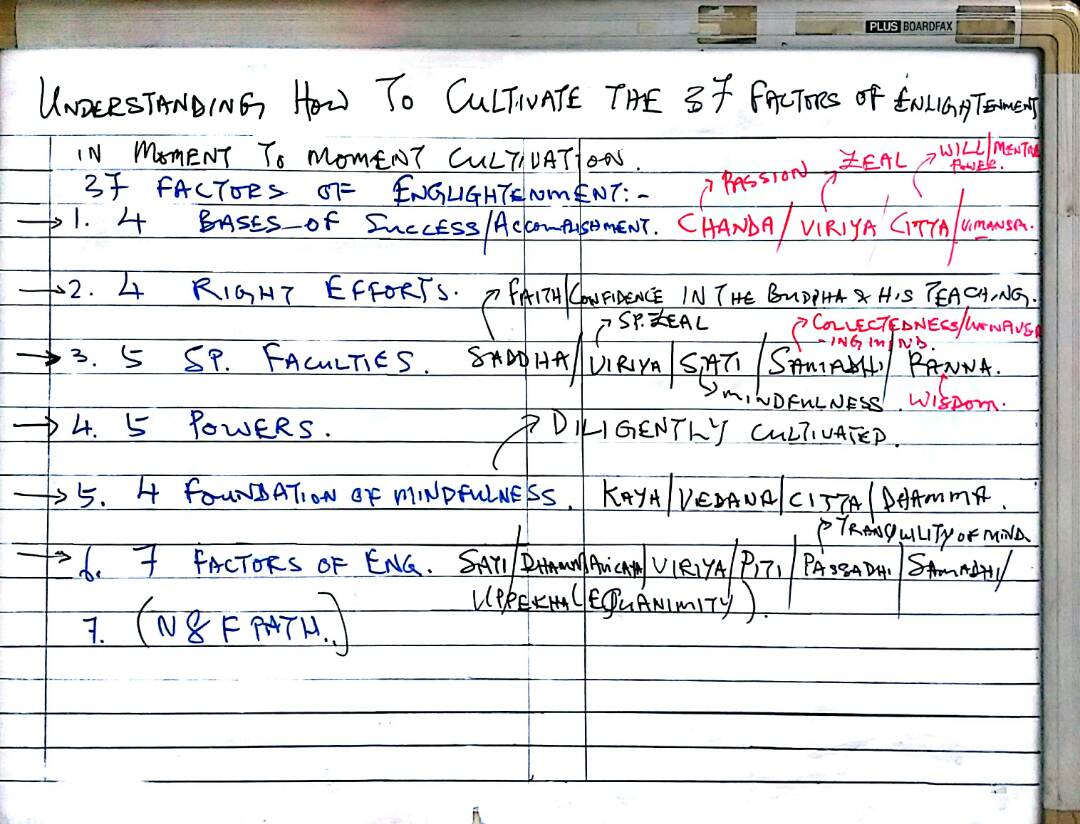 PLUS BOARDFAX
UNDERSTANDING HOW TO CULTIVATE THE 37 FACTORS OF ENLIGHTENMENT
IN MOMENT TO MOMENT CULTIVATION.
WILL/MENTAL POWER.
PASSION ZEAL
37 FACTORS OF ENGLIGHTENMENT:-
→ 1. 4 BASES OF SUCCESS/ACCOMPLISHMENT. CHANDA/VIRIYA/CITTA/VIMANSA.
→ 2. 4 RIGHT EFFORTS. FAITH/CONFIDENCE IN THE BUDDHA & HIS TEACHING.
SP. ZEAL COLLECTEDNESS/
-ING MIND.
→ 3. 5 SP. FACULTIES. SADDHA/VIRIYA/SATI/SAMADHI/PANNA.
MINDFULNESS. WISDOM.
→ 4. 5 POWERS. DILIGENTLY CULTIVATED.
→ 5. 4 FOUNDATION OF MINDFULNESS. KAYA/VEDANA/CITTA/DHAMMA.
TRANQUILITY OF MIND
→ 6. 7 FACTORS OF ENG. SATI/DHAMMAVICAYA/VIRIYA/PITI/PASSADHI/SAMADHI/
UPPEKHA (EQUANIMITY).
7. (N 8 F PATH.)